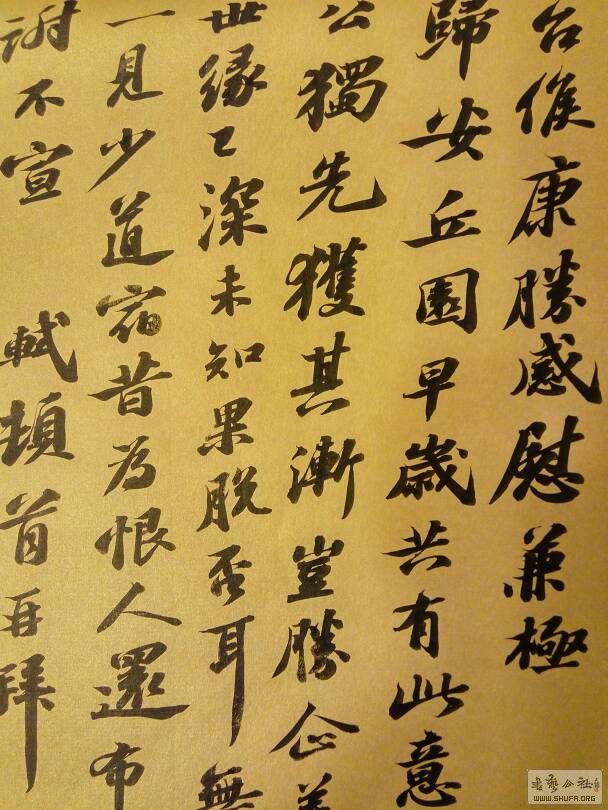 台候康勝感慰兼極
歸安丘園早歲共有此意
公獨先獲其漸豈勝企羨
世緣已深未知果脫否耳無
一見少道宿昔為恨人還布
謝不宣 軾頓首再拜
書藝公社
WWW.SHUFA.ORG